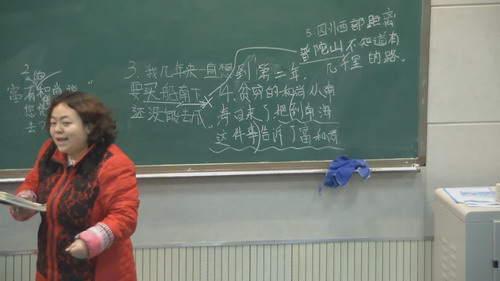 2.
富有和尚说"
您
去?
3.我几年来一直想
要买船南下,
还没做去
到第二年,
4.贫穷的和尚从南
海回来了把到南海
这件事告诉了富和尚
5.四川西部距离
普陀山不知道有
几千里的路.